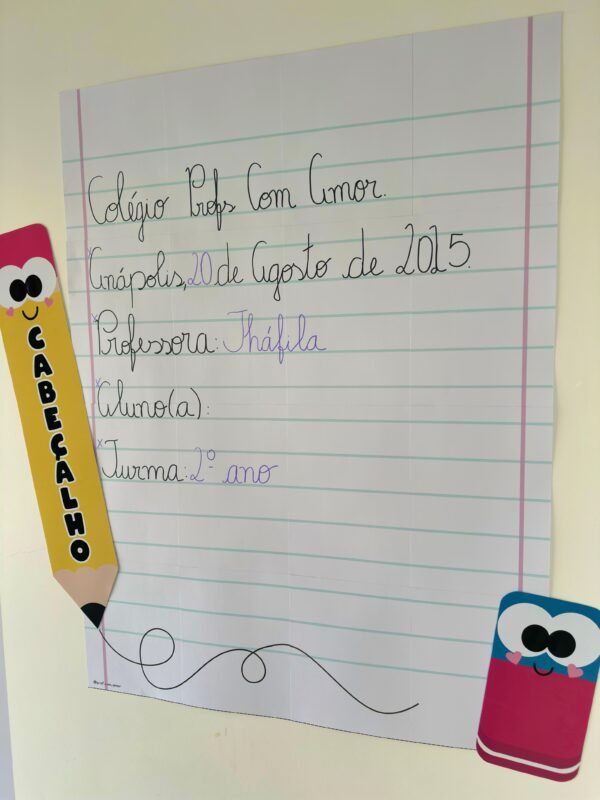 Colégio Profs Com Amor.
Anápolis, 20 de Agosto de 2025.
Professora: Tháfila
Aluno(a):
Turma: 2º ano
CABEÇALHO